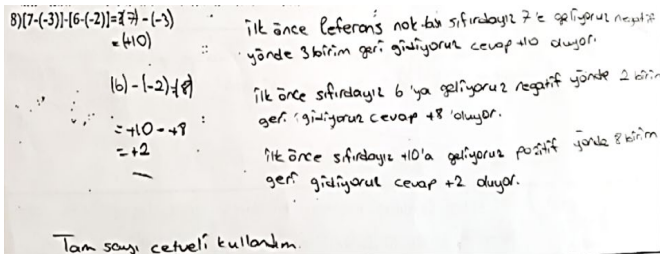 8)[7-(-3)]-[6-(-2)]=?(7)-(-3)
=(+10)
(6)-(-2)=(8)
=+10-+8
=+2
ilk önce Referans noktası sıfırdayız 7'e geliyoruz negatif
yönde 3 birim geri gidiyoruz cevap +10 oluyor.
ilk önce sıfırdayız 6'ya geliyoruz negatif yönde 2 birim
geri gidiyoruz cevap +8 oluyor.
ilk önce sıfırdayız +10'a geliyoruz pozitif yönde 8 birim
geri gidiyoruz cevap +2 oluyor.
Tam sayı cetveli kullandım.